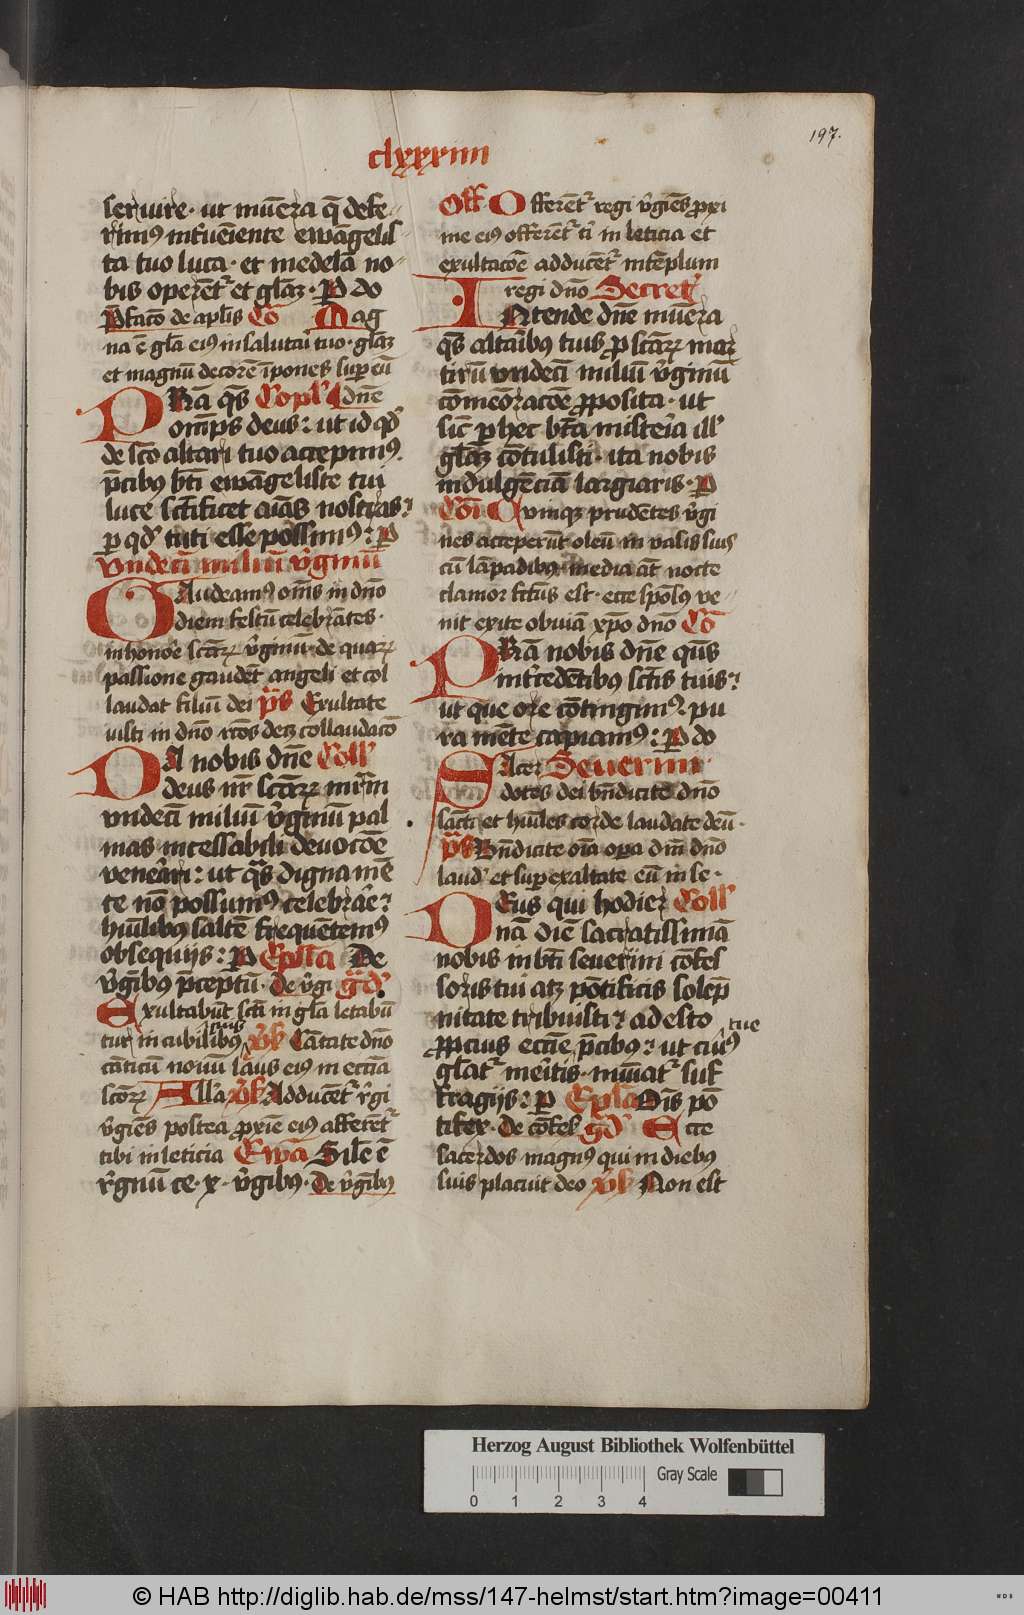 197.
clxxxiiii
seruire· ut mūera q̄ defe-
rimꝰ intueniente ewāgelis
ta tuo luca· et medelā no-
bis operēt᷑ et glāꝫ· P do
P̄facō de apl̄is Cō Mag
na ē gl̄a eiꝰ in salutari tuo· glāꝫ
et magnū decorē īpones sup eū
PRā q̄s Copl᷑ dn̄e
om̄ps deus: ut id qd᷑
de sc̄o altari tuo accepimꝰ
p̄cibꝰ bt̄i ewāgeliste tui
luce sc̄tificet aīas nostras:
ꝑ qd᷑ tuti esse possimꝰ: P
Vndecī miliū v̄ginū
GAudeamꝰ om̄s in dn̄o
diem festū celebrātes·
in honore sc̄aꝝ v̄ginū· de quaꝝ
passione gaudēt angeli et col
laudāt filiū dei p̄s Exultate
iusti in dn̄o rc̄os decꝫ collaudacō
DA nobis dn̄e Coll᷑
deus nr̄ sc̄aꝝ mr̄m
vndecī miliū v̄ginū pal
mas incessabili deuocōe
venerari: ut q̄s digna mē
te nō possumꝰ celebrare:
hūilibꝰ saltē frequētemꝰ
obsequijs: P Epl̄a De
v̄gibꝰ p̄ceptū· de v̄gi gd᷑.
Exultabūt sc̄i in gl̄a letabū
tur in cubilibꝰ suis V̄s Cātate dn̄o
cāticū nouū laus eiꝰ in eccīa
sc̄oꝝ All̄a V̄s Adducēt᷑ r̄gi
v̄gīes postea ꝓxīe eiꝰ afferēt᷑
tibi in leticia Ewā Sil̄e ē
r̄gnū ce· x· v̄gibꝰ· de v̄gibꝰ
Off Offerēt᷑ regi v̄gīes ꝓxi
me eiꝰ offerēt᷑ t̄i in leticia et
exultacōe adducēt᷑ in tēplum
regi dn̄o Secret᷑
INtende dn̄e mūera
q̄s altaribꝰ tuis ꝓ sc̄aꝝ mar
tirū vndecī miliū v̄ginū
cōmeōracōe ꝓposita· ut
sic̄ ꝑ hec bt̄a misteria ill᷑
glāꝫ cōtulisti· ita nobis
indulgēciā largiaris· P
Cōī Quinqꝫ prudētes v̄gi
nes acceperūt oleū in vasis suis
cū lāpadibꝰ· media āt nocte
clamor fc̄us est· ecce spōsꝰ ve-
nit exite obuiā xp̄o dn̄o Cō
PRā nobis dn̄e q̄us
int̄cedētibꝰ sc̄tis tuis:
ut que ore cōtingimꝰ pu
ra mēte capiamꝰ: P do
SAcer Seuerini
dotes dei bn̄dicite dn̄o
sancti et hūiles corde laudate deū·
p̄s Bn̄dicite oīa oꝑa dnī dn̄o
laud᷑ et supexaltate eū in se·
DEus qui hodier Coll᷑
nā diē sacratissimā
nobis in bt̄i seuerini cōfes
soris tui atqꝫ pōtificis solēp
nitate tribuisti: adesto
ꝓpicius eccīe tue p̄cibꝰ: ut cuiꝰ
glat᷑ meritis· muniat᷑ suf
fragijs: P Epl̄a Om̄s pō
tifex· de cōfes gd᷑ Ecce
sacerdos magnꝰ qui in diebꝰ
suis placuit deo V̄s Non est
Herzog August Bibliothek Wolfenbüttel
Gray Scale
0 1 2 3 4
© HAB http://diglib.hab.de/mss/147-helmst/start.htm?image=00411